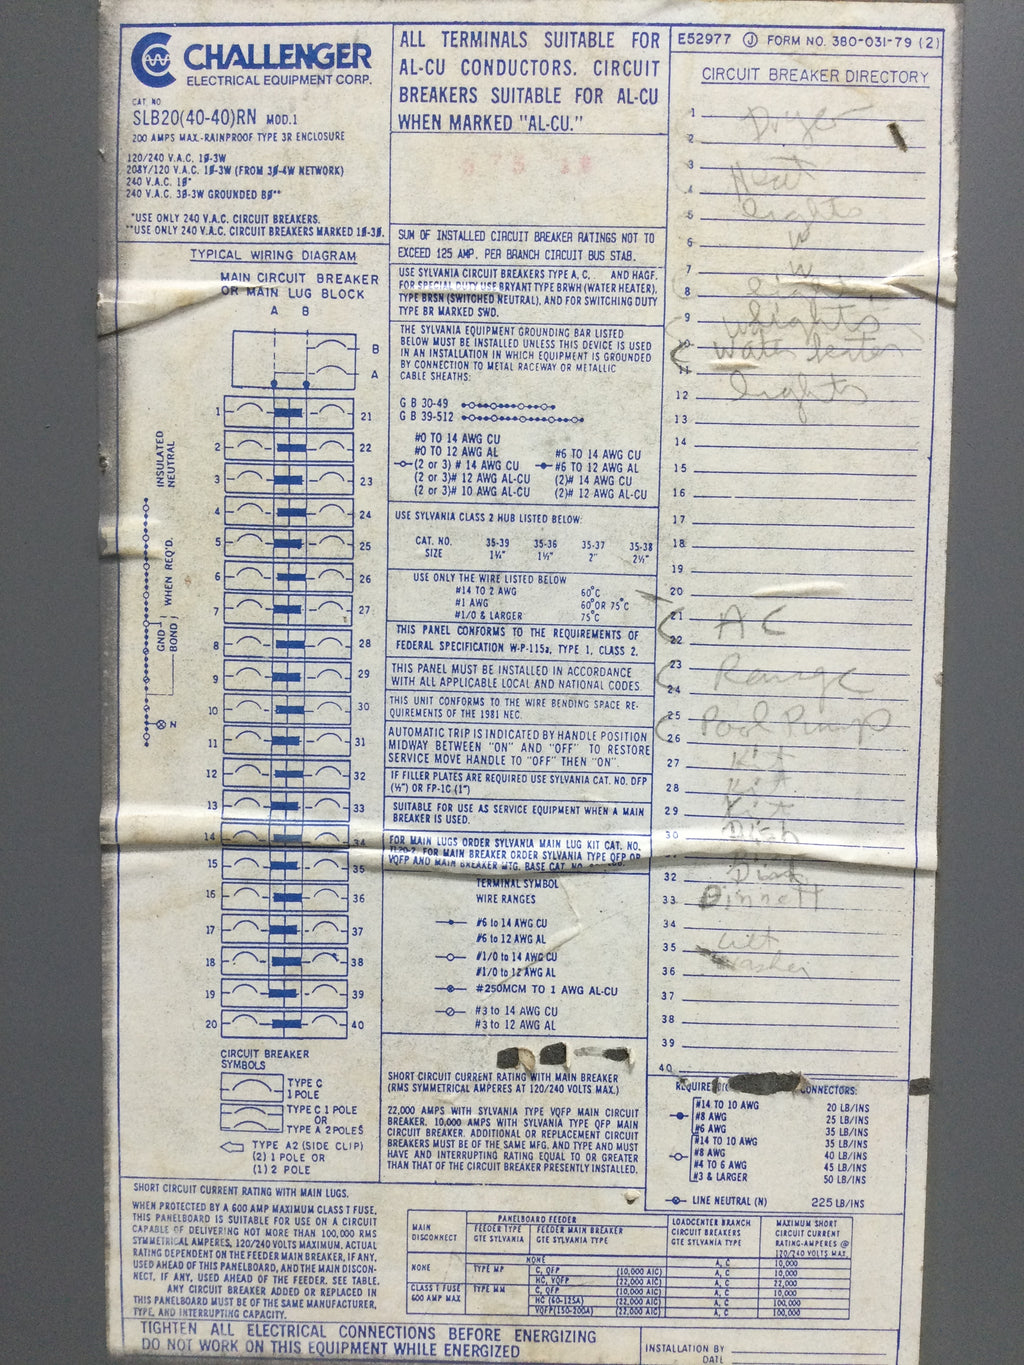 CHALLENGER
ELECTRICAL EQUIPMENT CORP.
CAT NO
SLB20(40-40)RN MOD.1
200 AMPS MAX.-RAINPROOF TYPE 3R ENCLOSURE
120/240 V.A.C. 1Ø-3W
208Y/120 V.A.C. 1Ø-3W (FROM 3Ø-4W NETWORK)
240 V.A.C. 1Ø*
240 V.A.C. 3Ø-3W GROUNDED BØ**
*USE ONLY 240 V.A.C. CIRCUIT BREAKERS.
**USE ONLY 240 V.A.C. CIRCUIT BREAKERS MARKED 1Ø-3Ø.
TYPICAL WIRING DIAGRAM
MAIN CIRCUIT BREAKER
OR MAIN LUG BLOCK
A B
B
A
1 21
2 22
3 23
4 24
5 25
6 26
7 27
8 28
9 29
10 30
11 31
12 32
13 33
14 34
15 35
16 36
17 37
18 38
19 39
20 40
INSULATED
NEUTRAL
GND
BOND
WHEN REQ'D.
N
CIRCUIT BREAKER
SYMBOLS
TYPE C
1 POLE
TYPE C 1 POLE
OR
TYPE A 2 POLES
TYPE A2 (SIDE CLIP)
(2) 1 POLE OR
(1) 2 POLE
ALL TERMINALS SUITABLE FOR
AL-CU CONDUCTORS. CIRCUIT
BREAKERS SUITABLE FOR AL-CU
WHEN MARKED "AL-CU."
SUM OF INSTALLED CIRCUIT BREAKER RATINGS NOT TO
EXCEED 125 AMP. PER BRANCH CIRCUIT BUS STAB.
USE SYLVANIA CIRCUIT BREAKERS TYPE A, C. AND HAGF.
FOR SPECIAL DUTY USE BRYANT TYPE BRWH (WATER HEATER),
TYPE BRSN (SWITCHED NEUTRAL), AND FOR SWITCHING DUTY
TYPE BR MARKED SWD.
THE SYLVANIA EQUIPMENT GROUNDING BAR LISTED
BELOW MUST BE INSTALLED UNLESS THIS DEVICE IS USED
IN AN INSTALLATION IN WHICH EQUIPMENT IS GROUNDED
BY CONNECTION TO METAL RACEWAY OR METALLIC
CABLE SHEATHS:
G B 30-49
G B 39-512
#0 TO 14 AWG CU
#0 TO 12 AWG AL
(2 or 3) # 14 AWG CU
(2 or 3)# 12 AWG AL-CU
(2 or 3)# 10 AWG AL-CU
#6 TO 14 AWG CU
#6 TO 12 AWG AL
(2)# 14 AWG CU
(2)# 12 AWG AL-CU
USE SYLVANIA CLASS 2 HUB LISTED BELOW:
CAT. NO. 35-39 35-36 35-37 35-38
SIZE 1¼" 1½" 2" 2½"
USE ONLY THE WIRE LISTED BELOW
#14 TO 2 AWG 60°C
#1 AWG 60°OR 75°C
#1/0 & LARGER 75°C
THIS PANEL CONFORMS TO THE REQUIREMENTS OF
FEDERAL SPECIFICATION W-P-115a, TYPE 1, CLASS 2.
THIS PANEL MUST BE INSTALLED IN ACCORDANCE
WITH ALL APPLICABLE LOCAL AND NATIONAL CODES
THIS UNIT CONFORMS TO THE WIRE BENDING SPACE RE-
QUIREMENTS OF THE 1981 NEC.
AUTOMATIC TRIP IS INDICATED BY HANDLE POSITION
MIDWAY BETWEEN "ON" AND "OFF" TO RESTORE
SERVICE MOVE HANDLE TO "OFF" THEN "ON".
IF FILLER PLATES ARE REQUIRED USE SYLVANIA CAT. NO. DFP
(½") OR FP-1C (1")
SUITABLE FOR USE AS SERVICE EQUIPMENT WHEN A MAIN
BREAKER IS USED.
FOR MAIN LUGS ORDER SYLVANIA MAIN LUG KIT CAT. NO.
FOR MAIN BREAKER ORDER SYLVANIA TYPE QFP OR
VQFP AND MAIN BREAKER MTG. BASE CAT. NO.
TERMINAL SYMBOL
WIRE RANGES
#6 to 14 AWG CU
#6 to 12 AWG AL
#1/0 to 14 AWG CU
#1/0 to 12 AWG AL
#250MCM TO 1 AWG AL-CU
#3 to 14 AWG CU
#3 to 12 AWG AL
SHORT CIRCUIT CURRENT RATING WITH MAIN BREAKER
(RMS SYMMETRICAL AMPERES AT 120/240 VOLTS MAX.)
22,000 AMPS WITH SYLVANIA TYPE VQFP MAIN CIRCUIT
BREAKER. 10,000 AMPS WITH SYLVANIA TYPE QFP MAIN
CIRCUIT BREAKER. ADDITIONAL OR REPLACEMENT CIRCUIT
BREAKERS MUST BE OF THE SAME MFG. AND TYPE AND MUST
HAVE AND INTERRUPTING RATING EQUAL TO OR GREATER
THAN THAT OF THE CIRCUIT BREAKER PRESENTLY INSTALLED.
E52977 J FORM NO. 380-031-79 (2)
CIRCUIT BREAKER DIRECTORY
1
Dryer
2
3
Heat
4
5 Lights
6 W
7 W
8 Lights
9
Lights
10 Water heater
11
12 Lights
13
14
15
16
17
18
19
20
21 AC
22
23
Range
24
25 Pool Pump
26
27 Kit
28 Kit
29 Kit
30 Dish
32
33
34
35
36 Washer
37
38
39
40
CONNECTORS:
#14 TO 10 AWG 20 LB/INS
#8 AWG 25 LB/INS
#6 AWG 35 LB/INS
#14 TO 10 AWG 35 LB/INS
#8 AWG 40 LB/INS
#4 TO 6 AWG 45 LB/INS
#3 & LARGER 50 LB/INS
LINE NEUTRAL (N) 225 LB/INS
SHORT CIRCUIT CURRENT RATING WITH MAIN LUGS.
WHEN PROTECTED BY A 600 AMP MAXIMUM CLASS T FUSE,
THIS PANELBOARD IS SUITABLE FOR USE ON A CIRCUIT
CAPABLE OF DELIVERING NOT MORE THAN 100,000 RMS
SYMMETRICAL AMPERES, 120/240 VOLTS MAXIMUM. ACTUAL
RATING DEPENDENT ON THE FEEDER MAIN BREAKER, IF ANY,
USED AHEAD OF THIS PANELBOARD, AND THE MAIN DISCON-
NECT, IF ANY, USED AHEAD OF THE FEEDER. SEE TABLE.
ANY CIRCUIT BREAKER ADDED OR REPLACED IN
THIS PANELBOARD MUST BE OF THE SAME MANUFACTURER,
TYPE, AND INTERRUPTING CAPACITY.
PANELBOARD FEEDER
MAIN DISCONNECT
FEEDER TYPE GTE SYLVANIA
FEEDER MAIN BREAKER GTE TYPE SYLVANIA
LOADCENTER BRANCH CIRCUIT BREAKERS GTE SYLVANIA TYPE
MAXIMUM SHORT CIRCUIT CURRENT RATING-AMPERES @ 120/240 VOLTS MAX.
NONE A, C 10,000
NONE TYPE MP C, QFP (10,000 AIC) A, C 10,000
HC, VQFP (22,000 AIC) A, C 22,000
CLASS T FUSE 600 AMP MAX TYPE MM C, QFP (10,000 AIC) A, C 10,000
HC (60-125A) (22,000 AIC) A, C 100,000
VQFP(150-200A) (22,000 AIC) A, C 100,000
TIGHTEN ALL ELECTRICAL CONNECTIONS BEFORE ENERGIZING
DO NOT WORK ON THIS EQUIPMENT WHILE ENERGIZED
INSTALLATION BY
DATE